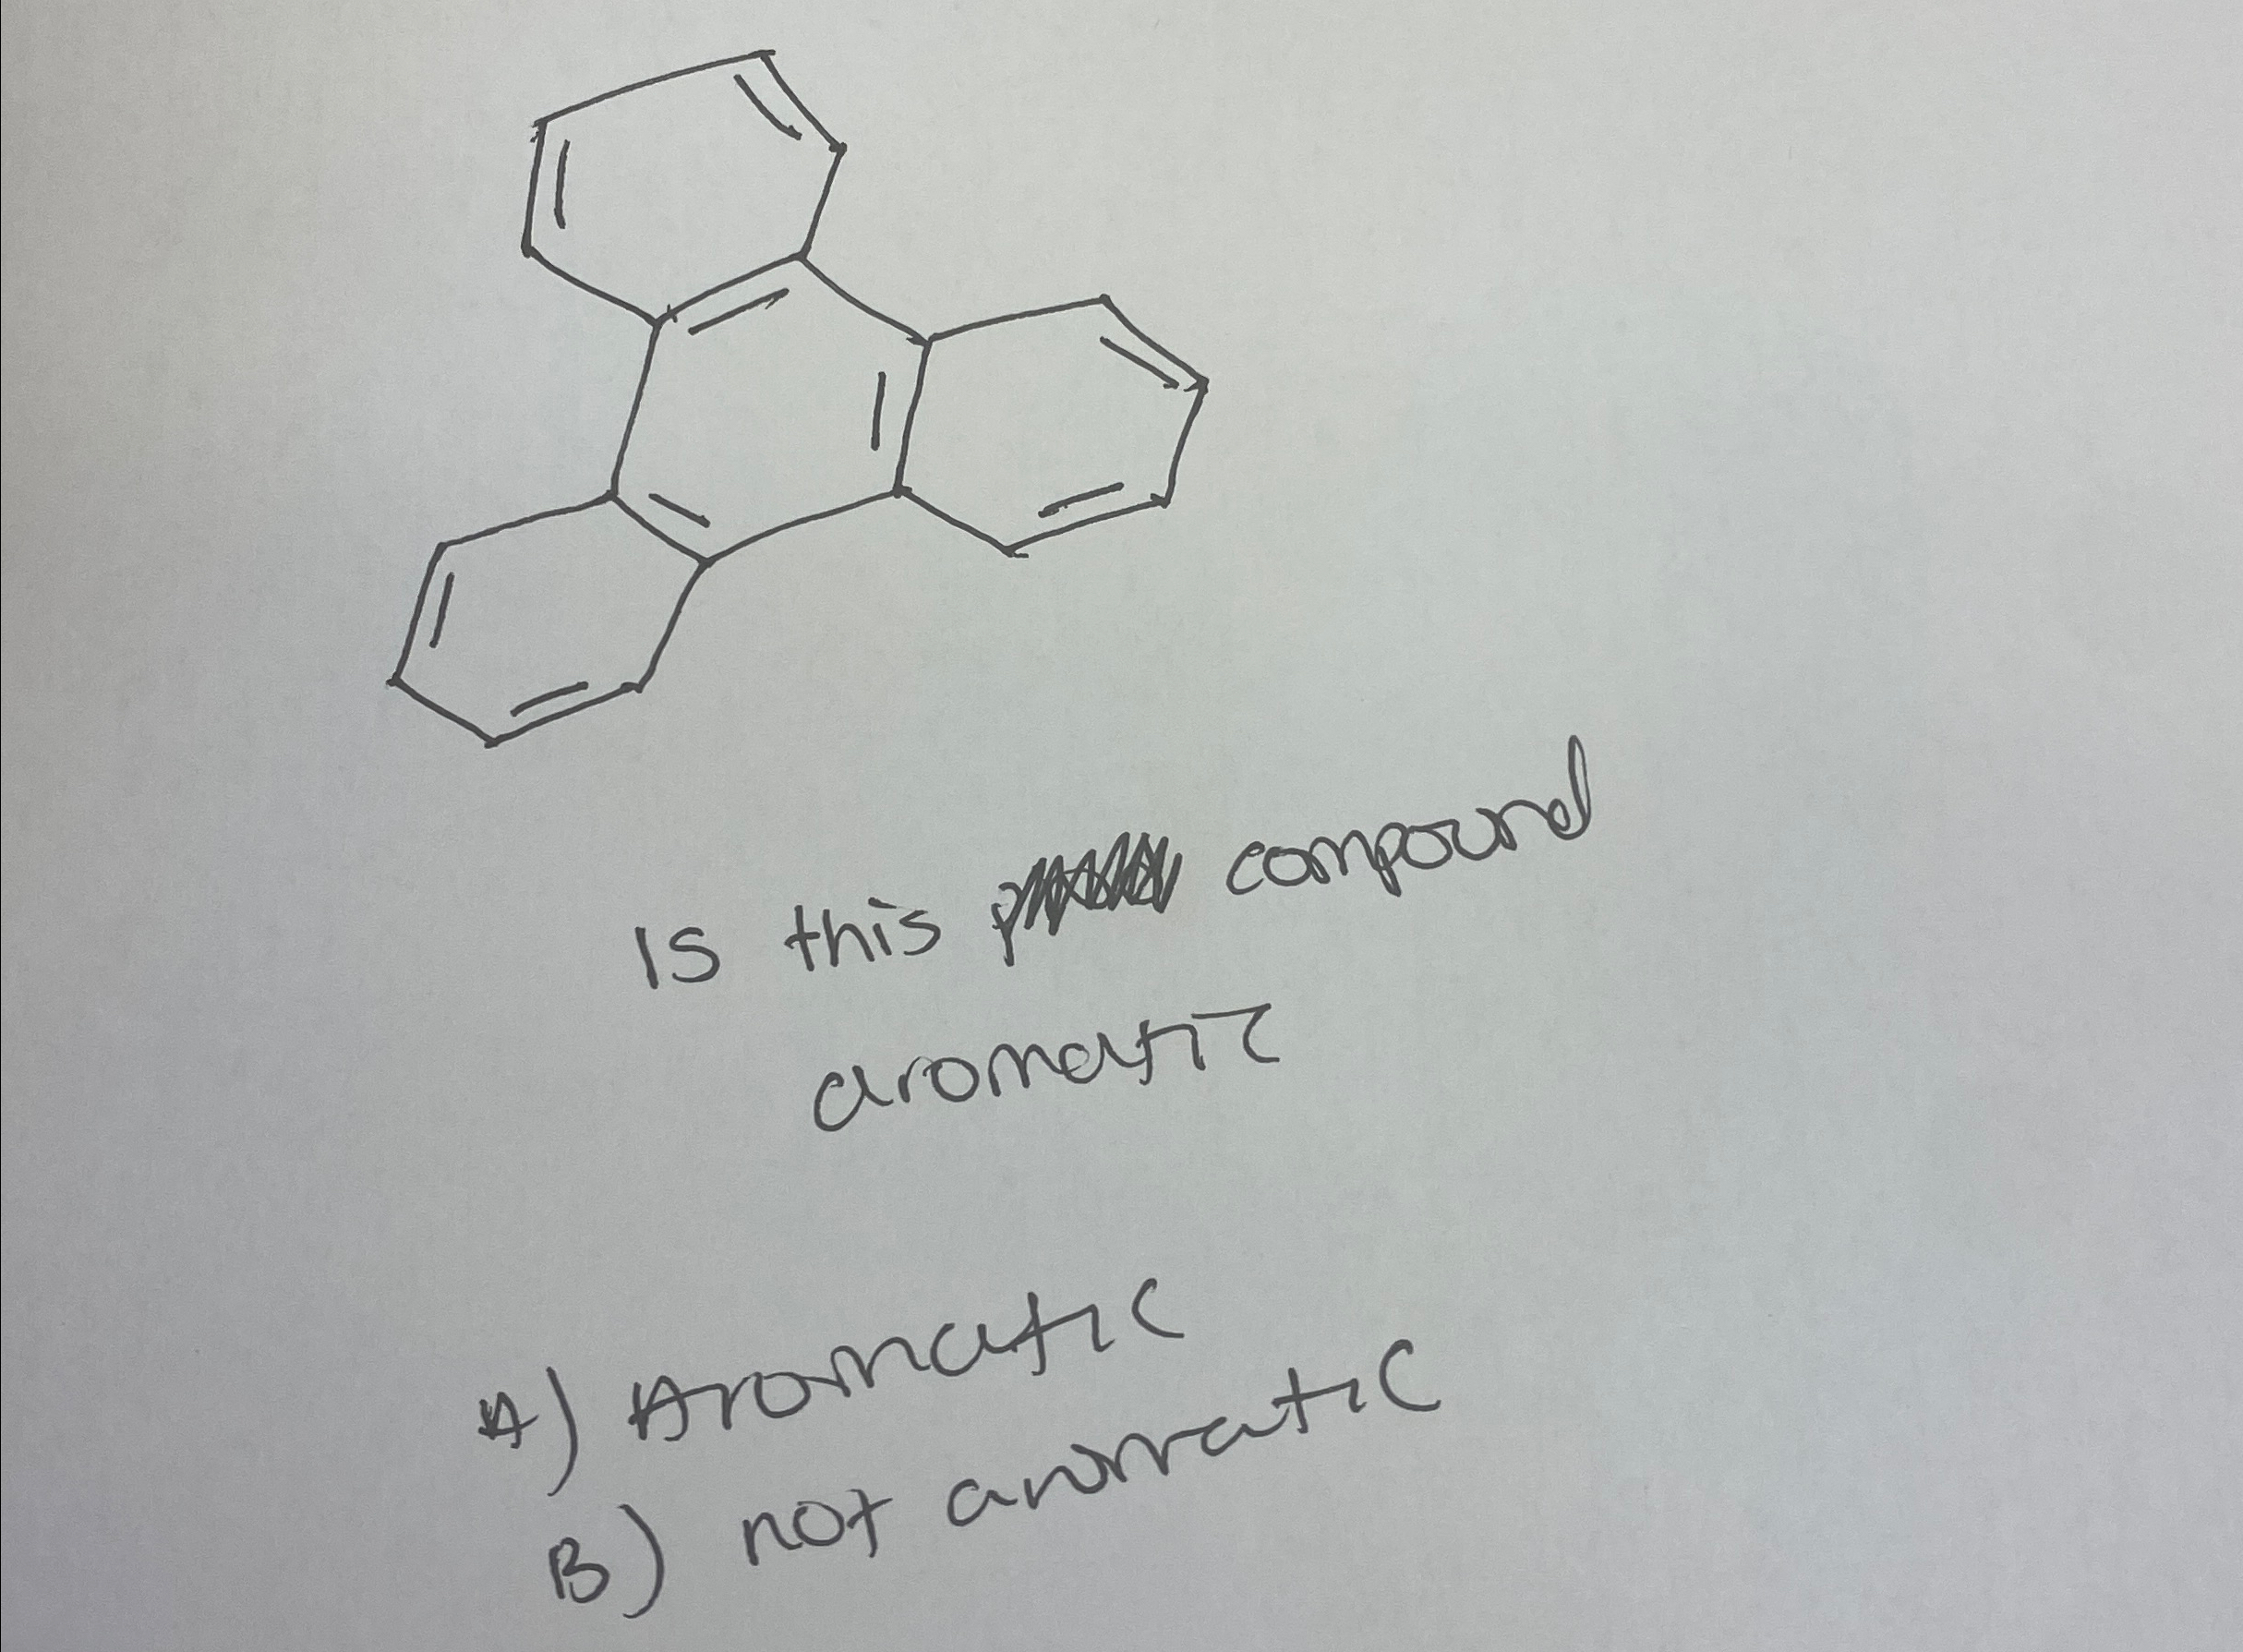 Is this compound
aromatic
A) Aromatic
B) not aromatic